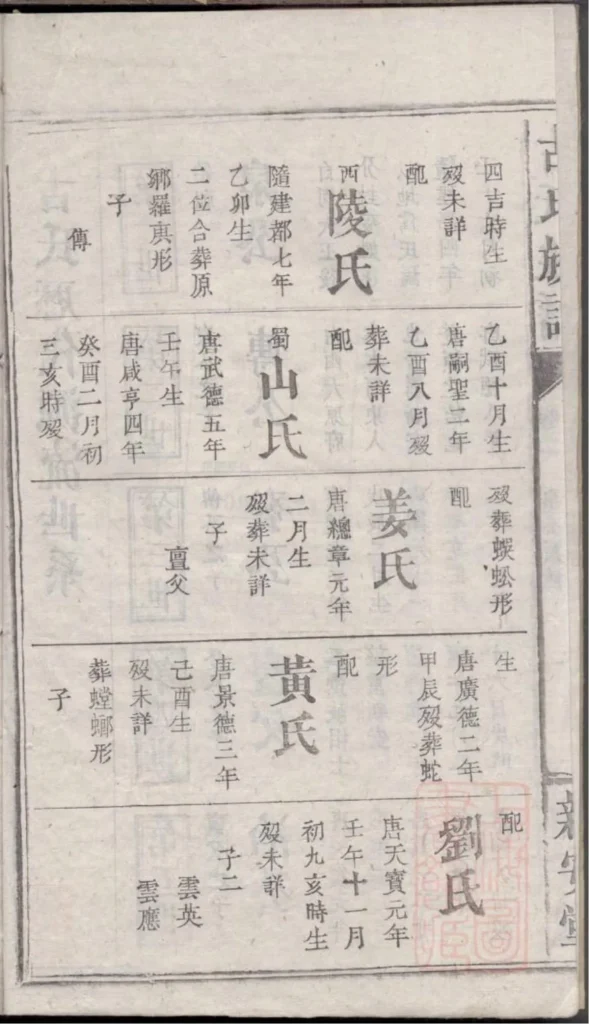 古氏族譜
新安堂
四吉時生
歿未詳
配
西陵氏
隨建都七年
乙卯生
二位合葬原
鄉羅形
子
傳
乙酉十月生
唐嗣聖二年
乙酉八月歿
葬未詳
配
蜀山氏
唐武德五年
壬午生
唐咸亨四年
癸酉二月初
三亥時歿
歿葬蜈蚣形
配
姜氏
唐總章元年
二月生
歿葬未詳
子
亶父
生
唐廣德二年
甲辰歿葬蛇
形
配
黃氏
唐景德三年
己酉生
歿未詳
葬螳螂形
子
配
劉氏
唐天寶元年
壬午十一月
初九亥時生
歿未詳
子二
雲英
雲應